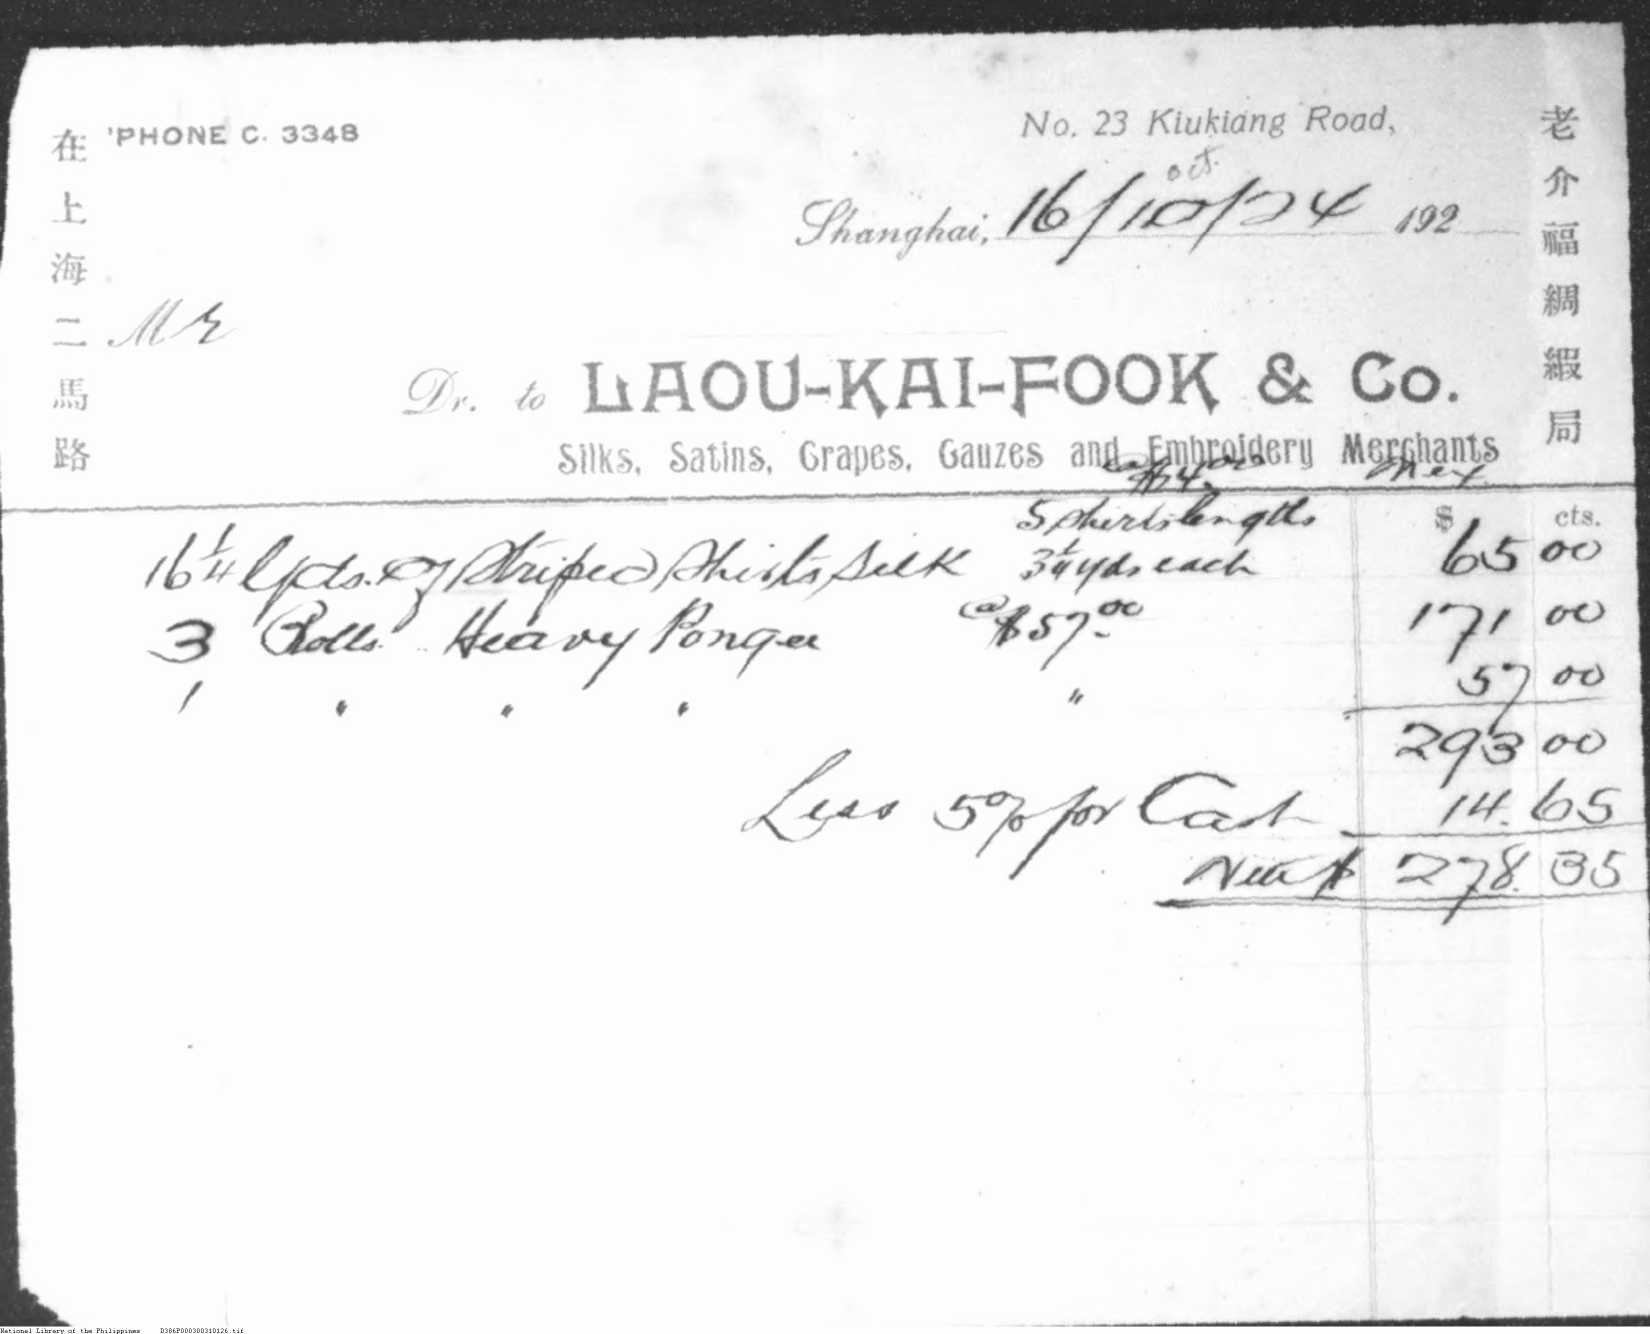 'PHONE C. 3348
No. 23 Kiukiang Road,
oct.
Shanghai, 16/10/24 192
在上海二馬路
老介福綢緞局
Mr
Dr. to LAOU-KAI-FOOK & Co.
Silks, Satins, Crapes, Gauzes and Embroidery Merchants
@ $4.00 Mex
5 shirts lengths $ cts.
16 1/4 yds. of Striped Shirts Silk 3 1/4 yds each 65 00
3 Rolls Heavy Pongee @ $57.00 171 00
1 " " " " 57 00
293 00
Less 5% for Cash 14.65
Nett $ 278.35
National Library of the Philippines D386P000300310126.tif